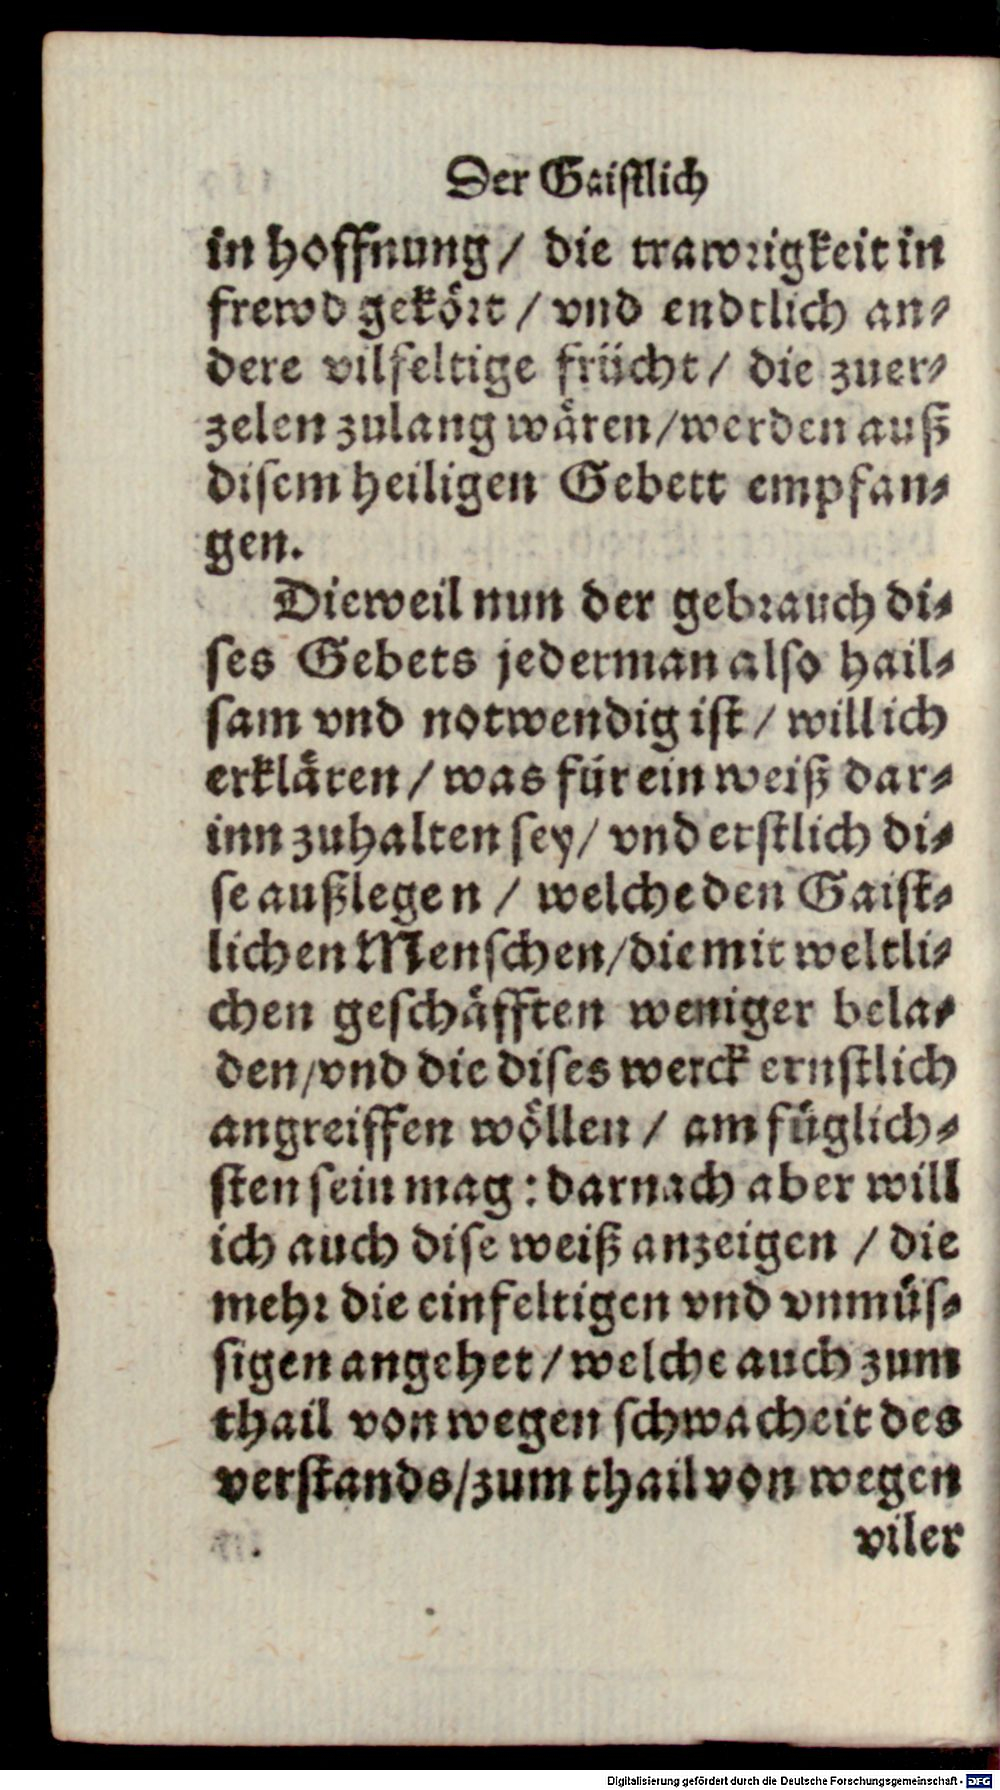 Der Gaistlich
in hoffnung / die trawrigkeit in
frewd gekört / vnd endtlich an-
dere vilfeltige frücht / die zuer-
zelen zulang wären / werden auß
disem heiligen Gebett empfan-
gen.
Dieweil nun der gebrauch di-
ses Gebets jederman also hail-
sam vnd notwendig ist / will ich
erklären / was für ein weiß dar-
inn zuhalten sey / vnd erstlich di-
se außlegen / welche den Gaist-
lichen Menschen / die mit weltli-
chen geschäfften weniger bela-
den / vnd die dises werck ernstlich
angreiffen wöllen / am füglich-
sten sein mag : darnach aber will
ich auch dise weiß anzeigen / die
mehr die einfeltigen vnd vnmüs-
sigen angehet / welche auch zum
thail von wegen schwacheit des
verstands / zum thail von wegen
viler
Digitalisierung gefördert durch die Deutsche Forschungsgemeinschaft - DFG